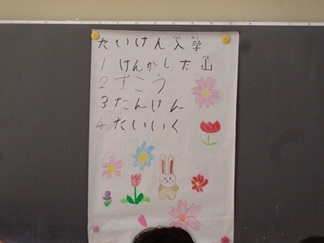 たいけん入学
1 けんかした山
2 ずこう
3 たんけん
4 たいいく